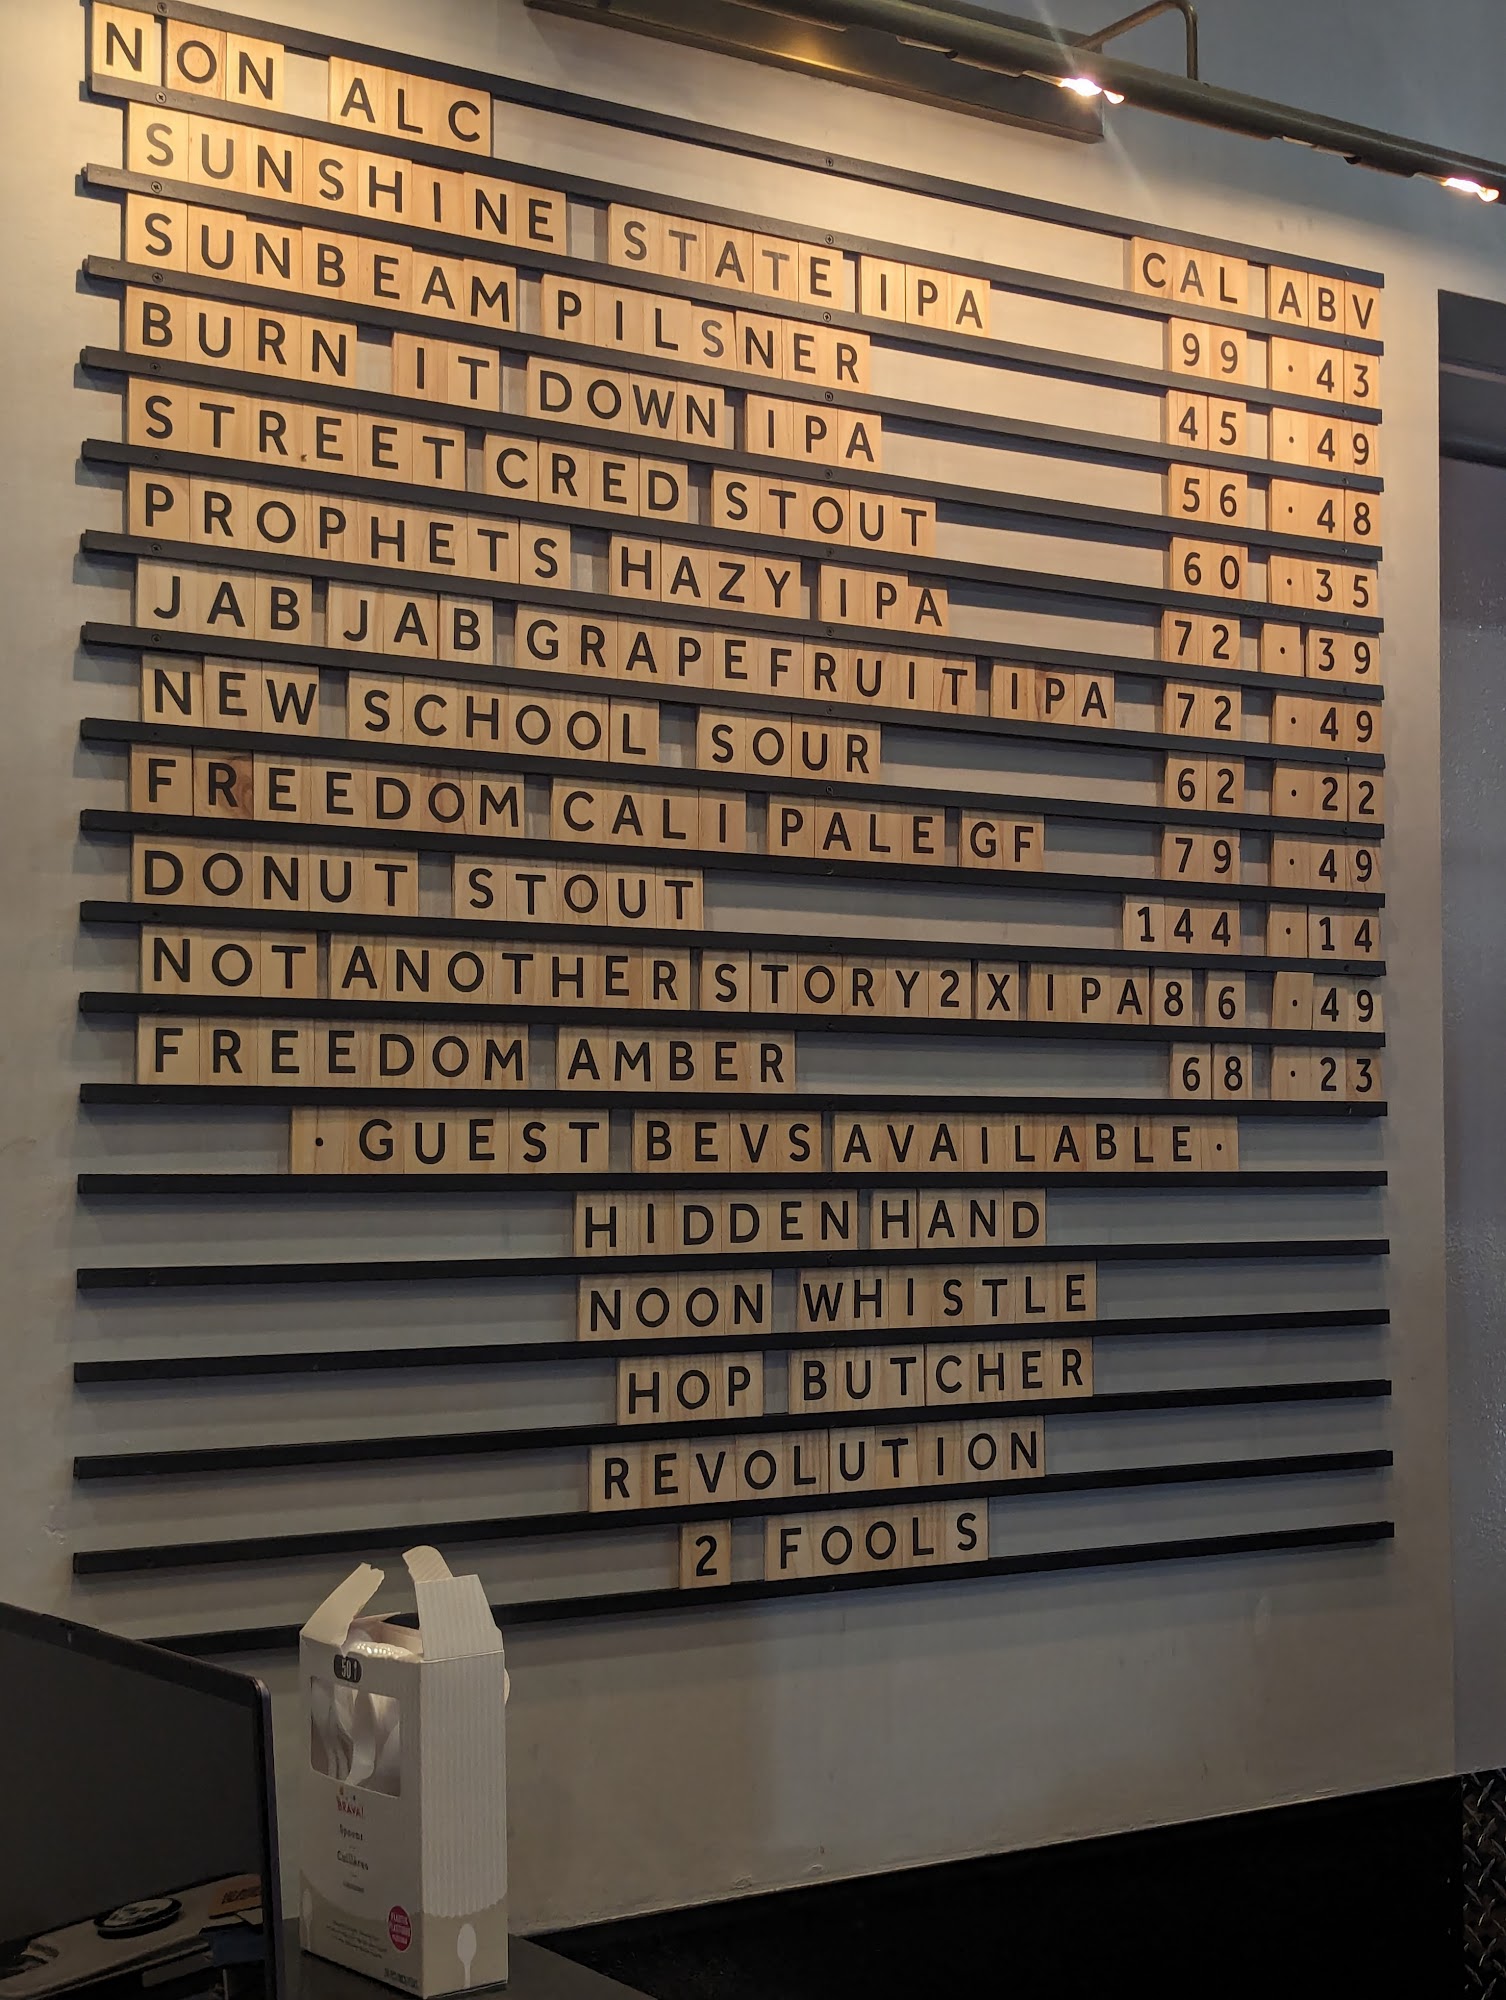 NON ALC CAL ABV
SUNSHINE STATE IPA 99 ·43
SUNBEAM PILSNER 45 ·49
BURN IT DOWN IPA 56 ·48
STREET CRED STOUT 60 ·35
PROPHETS HAZY IPA 72 ·39
JAB JAB GRAPEFRUIT IPA 72 ·49
NEW SCHOOL SOUR 62 ·22
FREEDOM CALI PALE GF 79 ·49
DONUT STOUT 144 ·14
NOT ANOTHER STORY 2X IPA 86 ·49
FREEDOM AMBER 68 ·23
· GUEST BEVS AVAILABLE ·
HIDDEN HAND
NOON WHISTLE
HOP BUTCHER
REVOLUTION
2 FOOLS
50
BRAVA!
Spoons
Cuillères